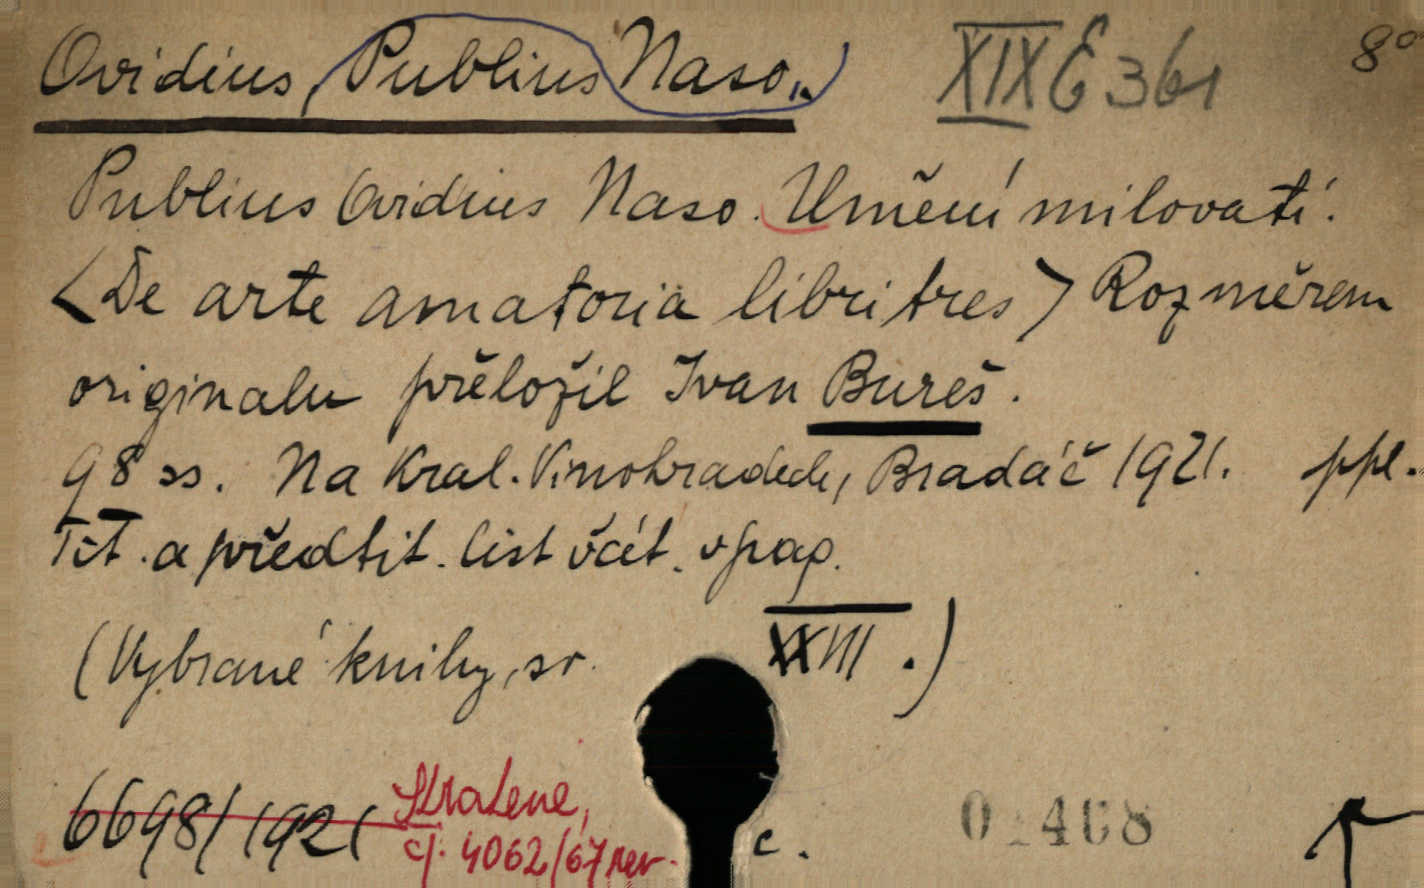 Ovidius, Publius Naso. XIX E 361 8°
Publius Ovidius Naso. Umění milovati.
<De arte amatoria libri tres> Rozměrem
originalu přeložil Ivan Bureš.
98 ss. Na Král. Vinohradech, Bradáč 1921. ppl.
Tit. a předtit. list včít. v pag.
(Vybrané knihy, sv. XXVII.)
6698/1921 Ztracené,
čj. 4062/67 rev. c. 0.468